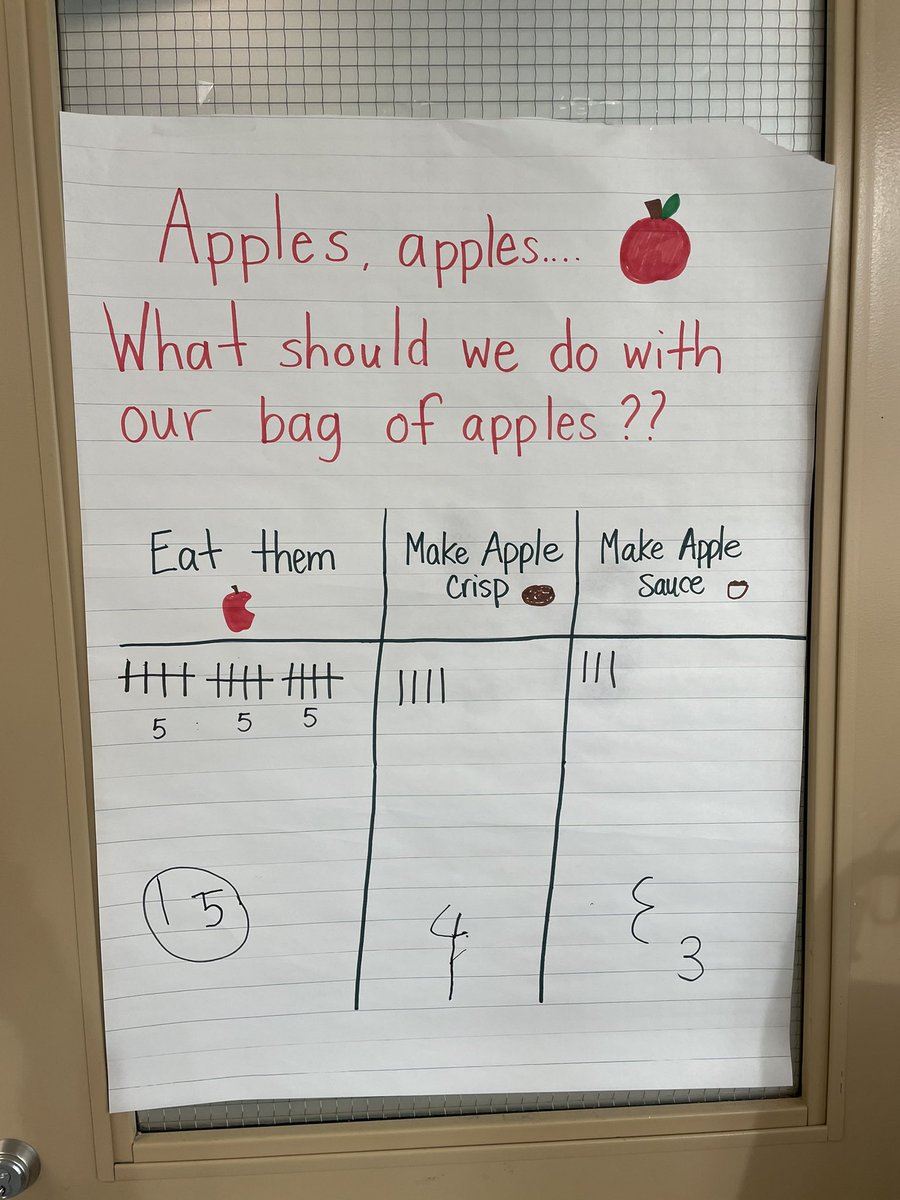 Apples, apples....
What should we do with
our bag of apples??
Eat them
Make Apple
Crisp
Make Apple
Sauce
5 5 5
15
4
3